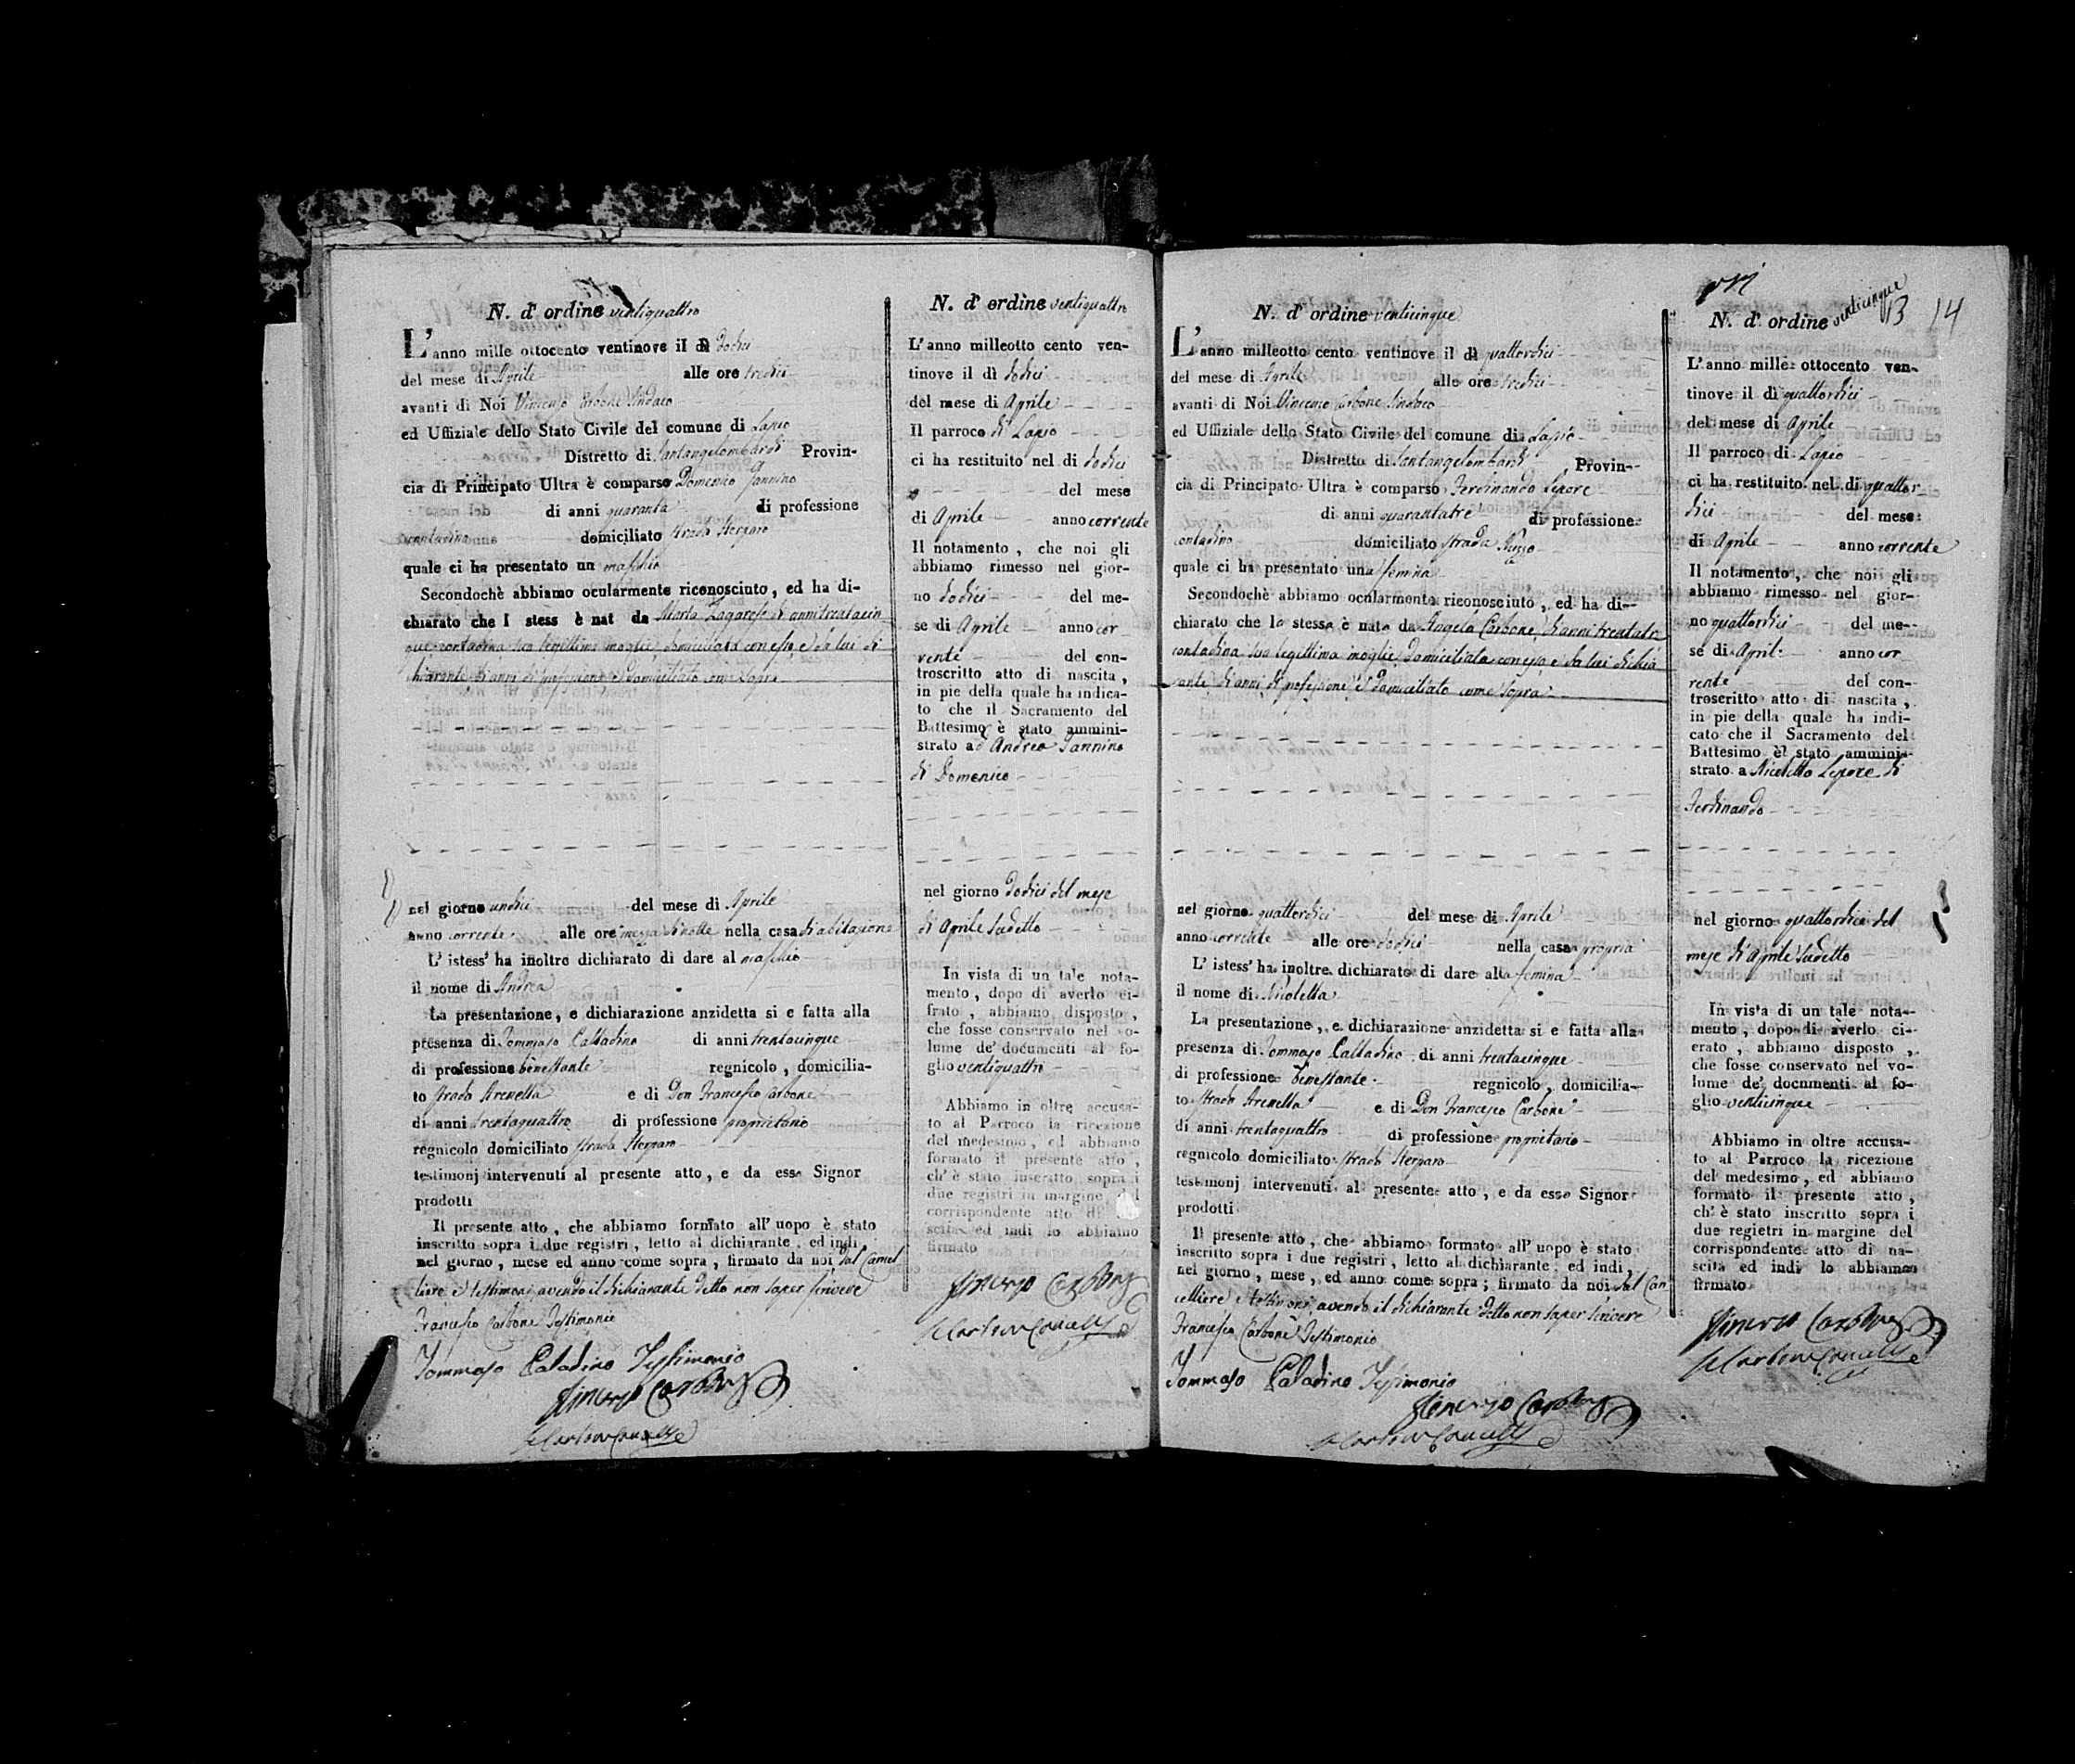 N. d' ordine ventiquattro
L' anno mille ottocento ventinove il dì dodici
del mese di Aprile alle ore tredici
avanti di Noi Vincenzo Carbone Sindaco
ed Uffiziale dello Stato Civile del comune di Lapio
Distretto di Santangelombardi Provin-
cia di Principato Ultra è comparso Domenico Iannino
di anni quaranta di professione
contadino domiciliato strada
quale ci ha presentato un maschio
Secondochè abbiamo ocularmente riconosciuto, ed ha di-
chiarato che l stess è nat da Marta di anni trentacin
que contadina sua legittima moglie, domiciliata con esso, e da lui di
chiarante di anni di professione e domiciliato come sopra
nel giorno undici del mese di Aprile
anno corrente alle ore mezza di notte nella casa di abitazione
L' istess' ha inoltre dichiarato di dare al maschio
il nome di Andrea
La presentazione, e dichiarazione anzidetta si e fatta alla
presenza di Tommaso Calladino di anni trentacinque
di professione benestante regnicolo, domicilia-
to strada Arenella e di Don Francesco Carbone
di anni trentaquattro di professione proprietario
regnicolo domiciliato strada
testimonj intervenuti al presente atto, e da esso Signor
prodotti
Il presente atto, che abbiamo formato all' uopo è stato
inscritto sopra i due registri, letto al dichiarante, ed indi,
nel giorno, mese ed anno come sopra, firmato da noi dal Cancel
liere e testimoni avendo il dichiarante detto non saper scrivere
Francesco Carbone Testimonio
Tommaso Caladino Testimonio
Vincenzo Carbone
N. d' ordine ventiquattro
L' anno milleotto cento ven-
tinove il dì dodici
del mese di Aprile
Il parroco di Lapio
ci ha restituito nel di dodici
del mese
di Aprile anno corrente
Il notamento, che noi gli
abbiamo rimesso nel gior-
no dodici del me-
se di Aprile anno cor
rente del con-
troscritto atto di nascita,
in pie della quale ha indica-
to che il Sacramento del
Battesimo è stato ammini-
strato ad Andrea Iannino
di Domenico
nel giorno dodici del mese
di Aprile sudetto
In vista di un tale nota-
mento, dopo di averlo ci-
frato, abbiamo disposto,
che fosse conservato nel vo-
lume de' documenti al fo-
glio ventiquattro
Abbiamo in oltre accusa-
to al Parroco la ricezione
del medesimo, ed abbiamo
formato il presente atto,
ch' è stato inscritto sopra i
due registri in margine del
corrispondente atto di
scita ed indi lo abbiamo
firmato
Vincenzo Carbone
N. d' ordine venticinque
L' anno milleotto cento ventinove il dì quattordici
del mese di Aprile alle ore tredici
avanti di Noi Vincenzo Carbone Sindaco
ed Uffiziale dello Stato Civile del comune di Lapio
Distretto di Santangelombardi Provin-
cia di Principato Ultra è comparso Ferdinando Lepore
di anni quarantatre di professione
contadino domiciliato strada
quale ci ha presentato una femina
Secondochè abbiamo ocularmente riconosciuto, ed ha di-
chiarato che la stessa è nata da Angela Carbone, di anni trentatre
contadina sua legittima moglie, domiciliata con esso, e da lui dichia
rante di anni di professione e domiciliato come sopra
nel giorno quattordici del mese di Aprile
anno corrente alle ore dodici nella casa propria
L' istess' ha inoltre dichiarato di dare alla femina
il nome di Nicoletta
La presentazione, e dichiarazione anzidetta si e fatta alla
presenza di Tommaso Calladino di anni trentacinque
di professione benestante regnicolo, domicilia-
to strada Arenella e di Don Francesco Carbone
di anni trentaquattro di professione proprietario
regnicolo domiciliato strada
testimonj intervenuti al presente atto, e da esso Signor
prodotti
Il presente atto, che abbiamo formato all' uopo è stato
inscritto sopra i due registri, letto al dichiarante, ed indi,
nel giorno, mese, ed anno come sopra; firmato da noi dal Can
celliere e testimoni, avendo il dichiarante detto non saper scrivere
Francesco Carbone Testimonio
Tommaso Caladino Testimonio
Vincenzo Carbone
13 14
N. d' ordine venticinque
L' anno mille ottocento ven-
tinove il dì quattordici
del mese di Aprile
Il parroco di Lapio
ci ha restituito nel di quattor
dici del mese
di Aprile anno corrente
Il notamento, che noi gli
abbiamo rimesso nel gior-
no quattordici del me-
se di Aprile anno cor
rente del con-
troscritto atto di nascita,
in pie della quale ha indi-
cato che il Sacramento del
Battesimo è stato ammini-
strato a Nicoletta Lepore di
Ferdinando
nel giorno quattordici del
mese di Aprile sudetto
In vista di un tale nota-
mento, dopo di averlo ci-
erato, abbiamo disposto,
che fosse conservato nel vo-
lume de' documenti al fo-
glio venticinque
Abbiamo in oltre accusa-
to al Parroco la ricezione
del medesimo, ed abbiamo
formato il presente atto,
ch' è stato inscritto sopra i
due registri in margine del
corrispondente atto di na-
scita ed indi lo abbiamo
firmato
Vincenzo Carbone